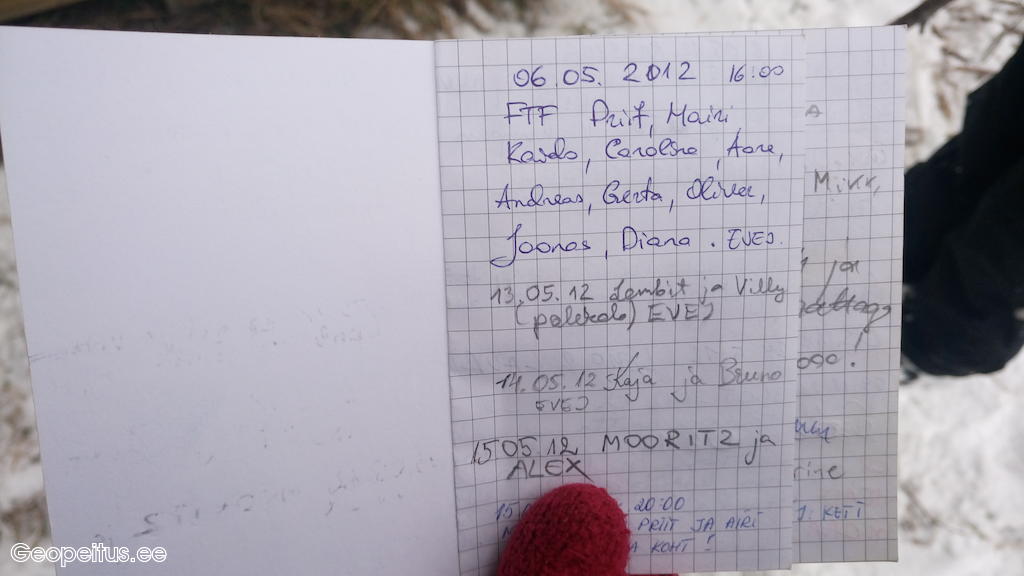 06.05.2012 16:00
FTF Priit, Mairi
Kaido, Carolina, Aare,
Andreas, Gerta, Oliver,
Joonas, Diana. EVEJ.
13.05.12 Lembit ja Villy
EVEJ
14.05.12 Kaja ja Bruno
EVEJ
15 05 12 MOORITZ ja
ALEX
15 20:00
PRIIT JA AIRI
KOHT!
A
Mikk,
ja
J. KETT
Geopeitus.ee